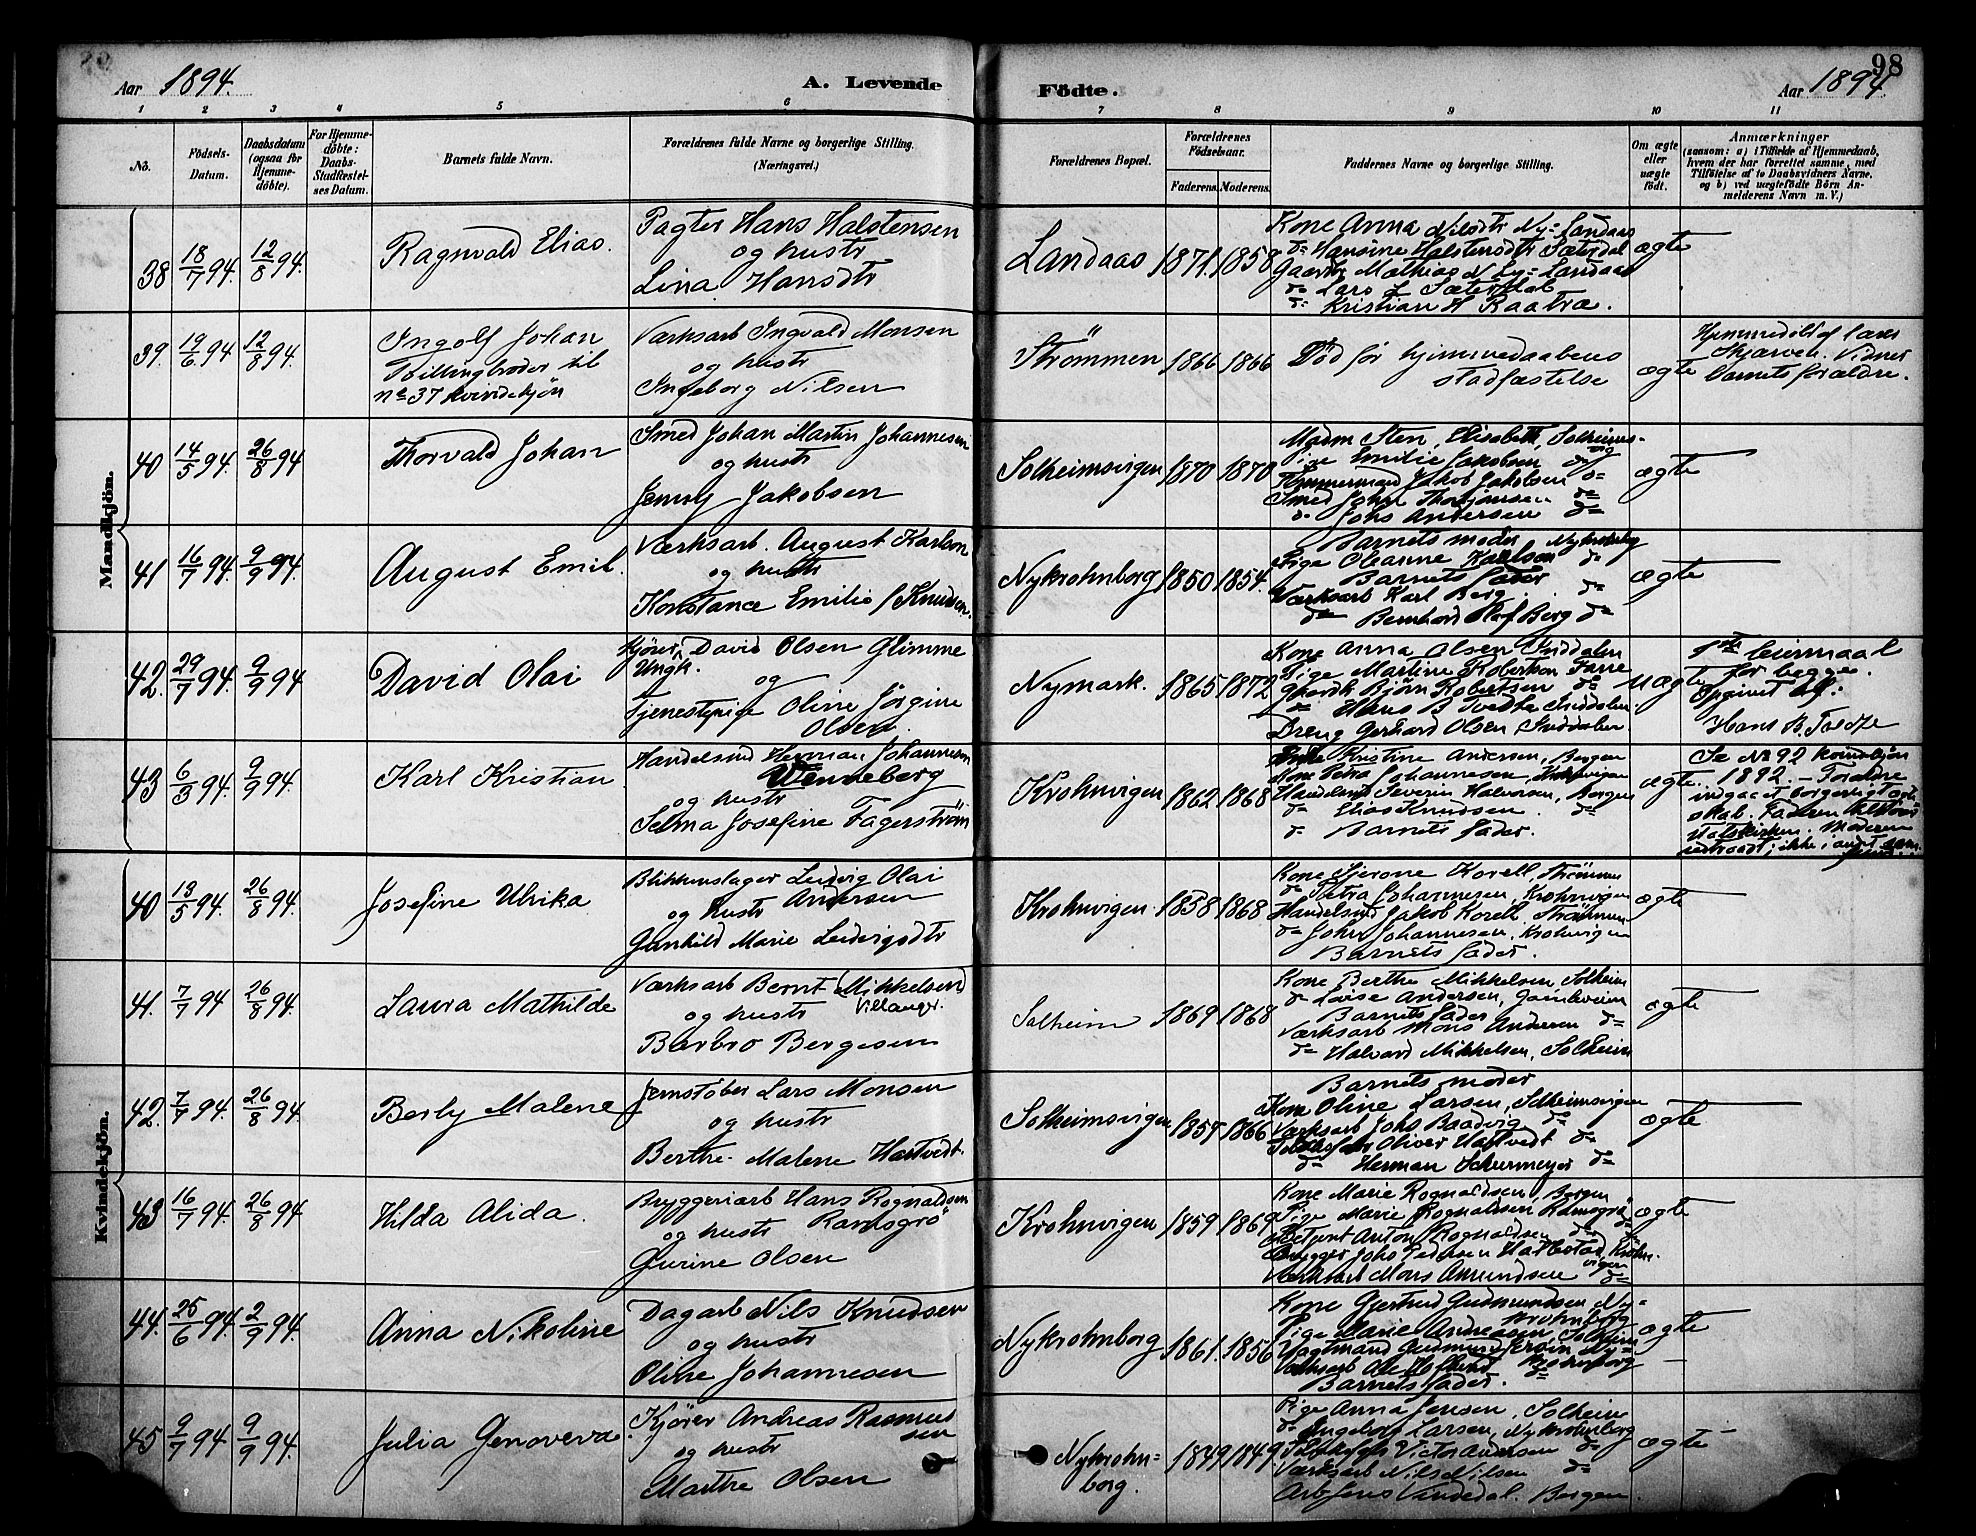 98
Aar 1894.
A. Levende
Fødte.
Aar 1894.
1 2 3 4 5 6 7 8 9 10 11
No.
Fødsels-
Datum.
Daabsdatum
(ogsaa for
Hjemme-
døbte).
For Hjemme-
døbte:
Daabs-
Stadfæstel-
ses Datum.
Barnets fulde Navn.
Forældrenes fulde Navne og borgerlige Stilling.
(Næringsvei.)
Forældrenes Bopæl.
Forældrenes
Fødselsaar.
Faderens. Moderens.
Faddernes Navne og borgerlige Stilling.
Om ægte
eller
uægte
født.
Anmærkninger
(saasom: a) i Tilfælde af Hjemmedaab,
hvem der har forrettet samme, med
Tilføielse af to Daabsvidners Navne,
og b) ved uægtefødte Børn An-
melderens Navn m. V.)
Mandkjön.
38 18/7 94. 12/8 94.
Ragnvald Elias.
Pagter Hans Halstensen
og hustr
Lina Hansdtr
Landaas 1871. 1858
Kone Anna Nilsdtr Ny-Landaas
d= Hansine Halstensdtr Sæterdal
Gaardbr Mathias N Ny-Landaas
d= Lars L Sæterdal
d= Kristian H Raatra.
ægte
39. 19/6 94 12/8 94.
Ingolf Johan
Tvillingbroder til
no 37 kvindekjøn
Værksarb Ingvald Monsen
og hustr
Ingeborg Nilsen
Strømmen 1866 1866
Død før hjemmedaabens
stadfæstelse
ægte
Hjemmedøbt af lærer
Skjarven. Vidner
barnets forældre.
40 14/5 94. 26/8 94
Thorvald Johan
Smed Johan Martin Johannesen
og hustr
Jenny Jakobsen
Solheimsvigen 1870 1870
Madm Sten, Elisabeth, Solheims-
vig
Pige Emilie Jakobsen d=
Tømmermand Jakob Jakobsen d=
Smed John Thorjansen d=
d= Johs Andersen d=
ægte
41 16/7 94. 9/9 94.
August Emil.
Værksarb. August Karlson
og hustr
Konstance Emilie f Knudsen.
Nykrohnborg 1850 1854.
Barnets moder Nykrohnborg
Pige Oleanne Karlson d=
Barnets fader
Værksarb Karl Berg d=
d= Bernhard Olaf Berg d=
ægte
42. 29/7 94. 9/9 94
David Olai
Kjører, David Olsen Glimme
Ungk.
og
Tjenestepige Oline Jørgine
Olsen
Nymark. 1865 1872
Kone Anna Olsen Sniddalen
Pige Martine Robertson Farre
Gaardbr Bjørn Robertsen d=
d= Hans B Tvedte Sniddalen
Dreng Gerhard Olsen Sniddalen
uægte
1ste leiermaal
for begge.
Opgivet af:
Hans B. Tvedte
43 6/3 94. 9/9 94.
Karl Kristian
Handelsmd Herman Johannesen
Wenneberg
og hustr
Selma Josefine Fagerström
Krohnvigen 1862 1868
Kristine Andersen, Bergen
Kone Petra Johannesen, Krohnvigen
Handelsmd Severin Halvorsen, Bergen
d= Elias Knudsen d=
d= Barnets fader.
ægte.
Se No 92 kvindekjøn
1892. – Forældre
indgaaet borgerligt ægte
skab. Faderen
statskirken. Moderen
udtraadt; ikke i andet sam
fund.
Kvindekjön.
40 13/5 94. 26/8 94.
Josefine Ulrika
Blikkenslager Ludvig Olai
Andersen
og hustr
Gunhild Marie Ludvigsdtr
Krohnvigen. 1858 1868
Kone Korell, Strømmen
d= Petra Johannesen, Krohnvigen
Handelsmd Jakob Korell Strømmen
d= John Johannesen, Krohnvigen
Barnets fader.
ægte
41. 7/7 94 26/8 94.
Laura Mathilde
Værksarb Bernt (Mikkelsen)
Villanger.
og hustr
Barbro Bergesen
Solheim 1869 1868
Kone Berthe Mikkelsen, Solheim
d= Lovise Andersen,
Barnets fader
Værksarb Mons Andersen d=
d= Halvard Mikkelsen, Solheim
ægte
42. 7/7 94. 26/8 94.
Berly Malene
Jernstøber Lars Monsen
og hustr
Berthe Malene Hartvedt.
Solheimsvigen 1857 1866
Barnets moder
Kone Oline Larsen, Solheimsvigen
Værksarb Johs Baadvig d=
Oliver Hartvedt d=
d= Herman Schurmeyer d=
ægte
43 16/7 94. 26/8 94
Hilda Alida.
Bryggeriarb Hans Rognaldsen
Ramsgrø
og hustr
Gurine Olsen
Krohnvigen 1859 1869
Kone Marie Rognaldsen, Bergen
Pige Marie Rognaldsen Ramsgrø
Anton Rognaldsen d=
Brygger Johs Pedersen Hatlestad, Krohn-
vigen
Værksarb Mons Amundsen d=
ægte
44. 25/6 94. 2/9 94.
Anna Nikoline
Dagarb Nils Knudsen
og hustr
Oline Johannesen
Nykrohnborg 1861. 1856
Kone Gjertrud Gudmundsen, Ny-
krohnborg
Pige Marie Andreasen, Solheim
Vagtmand Gudmund Ny-
krohnborg
Værksarb Ole d=
Barnets fader.
ægte
45 9/7 94 9/9 94.
Julia Genoveva
Kjører Andreas Rasmus
sen
og hustr
Marthe Olsen
Nykrohn-
borg. 1849 1849.
Pige Anna Jensen, Solheim
d= Ingeborg Larsen, Nykrohnborg
Victor Andersen d=
Værksarb Nils Nilsen d=
Arb Jens Vindedal. Bergen.
ægte